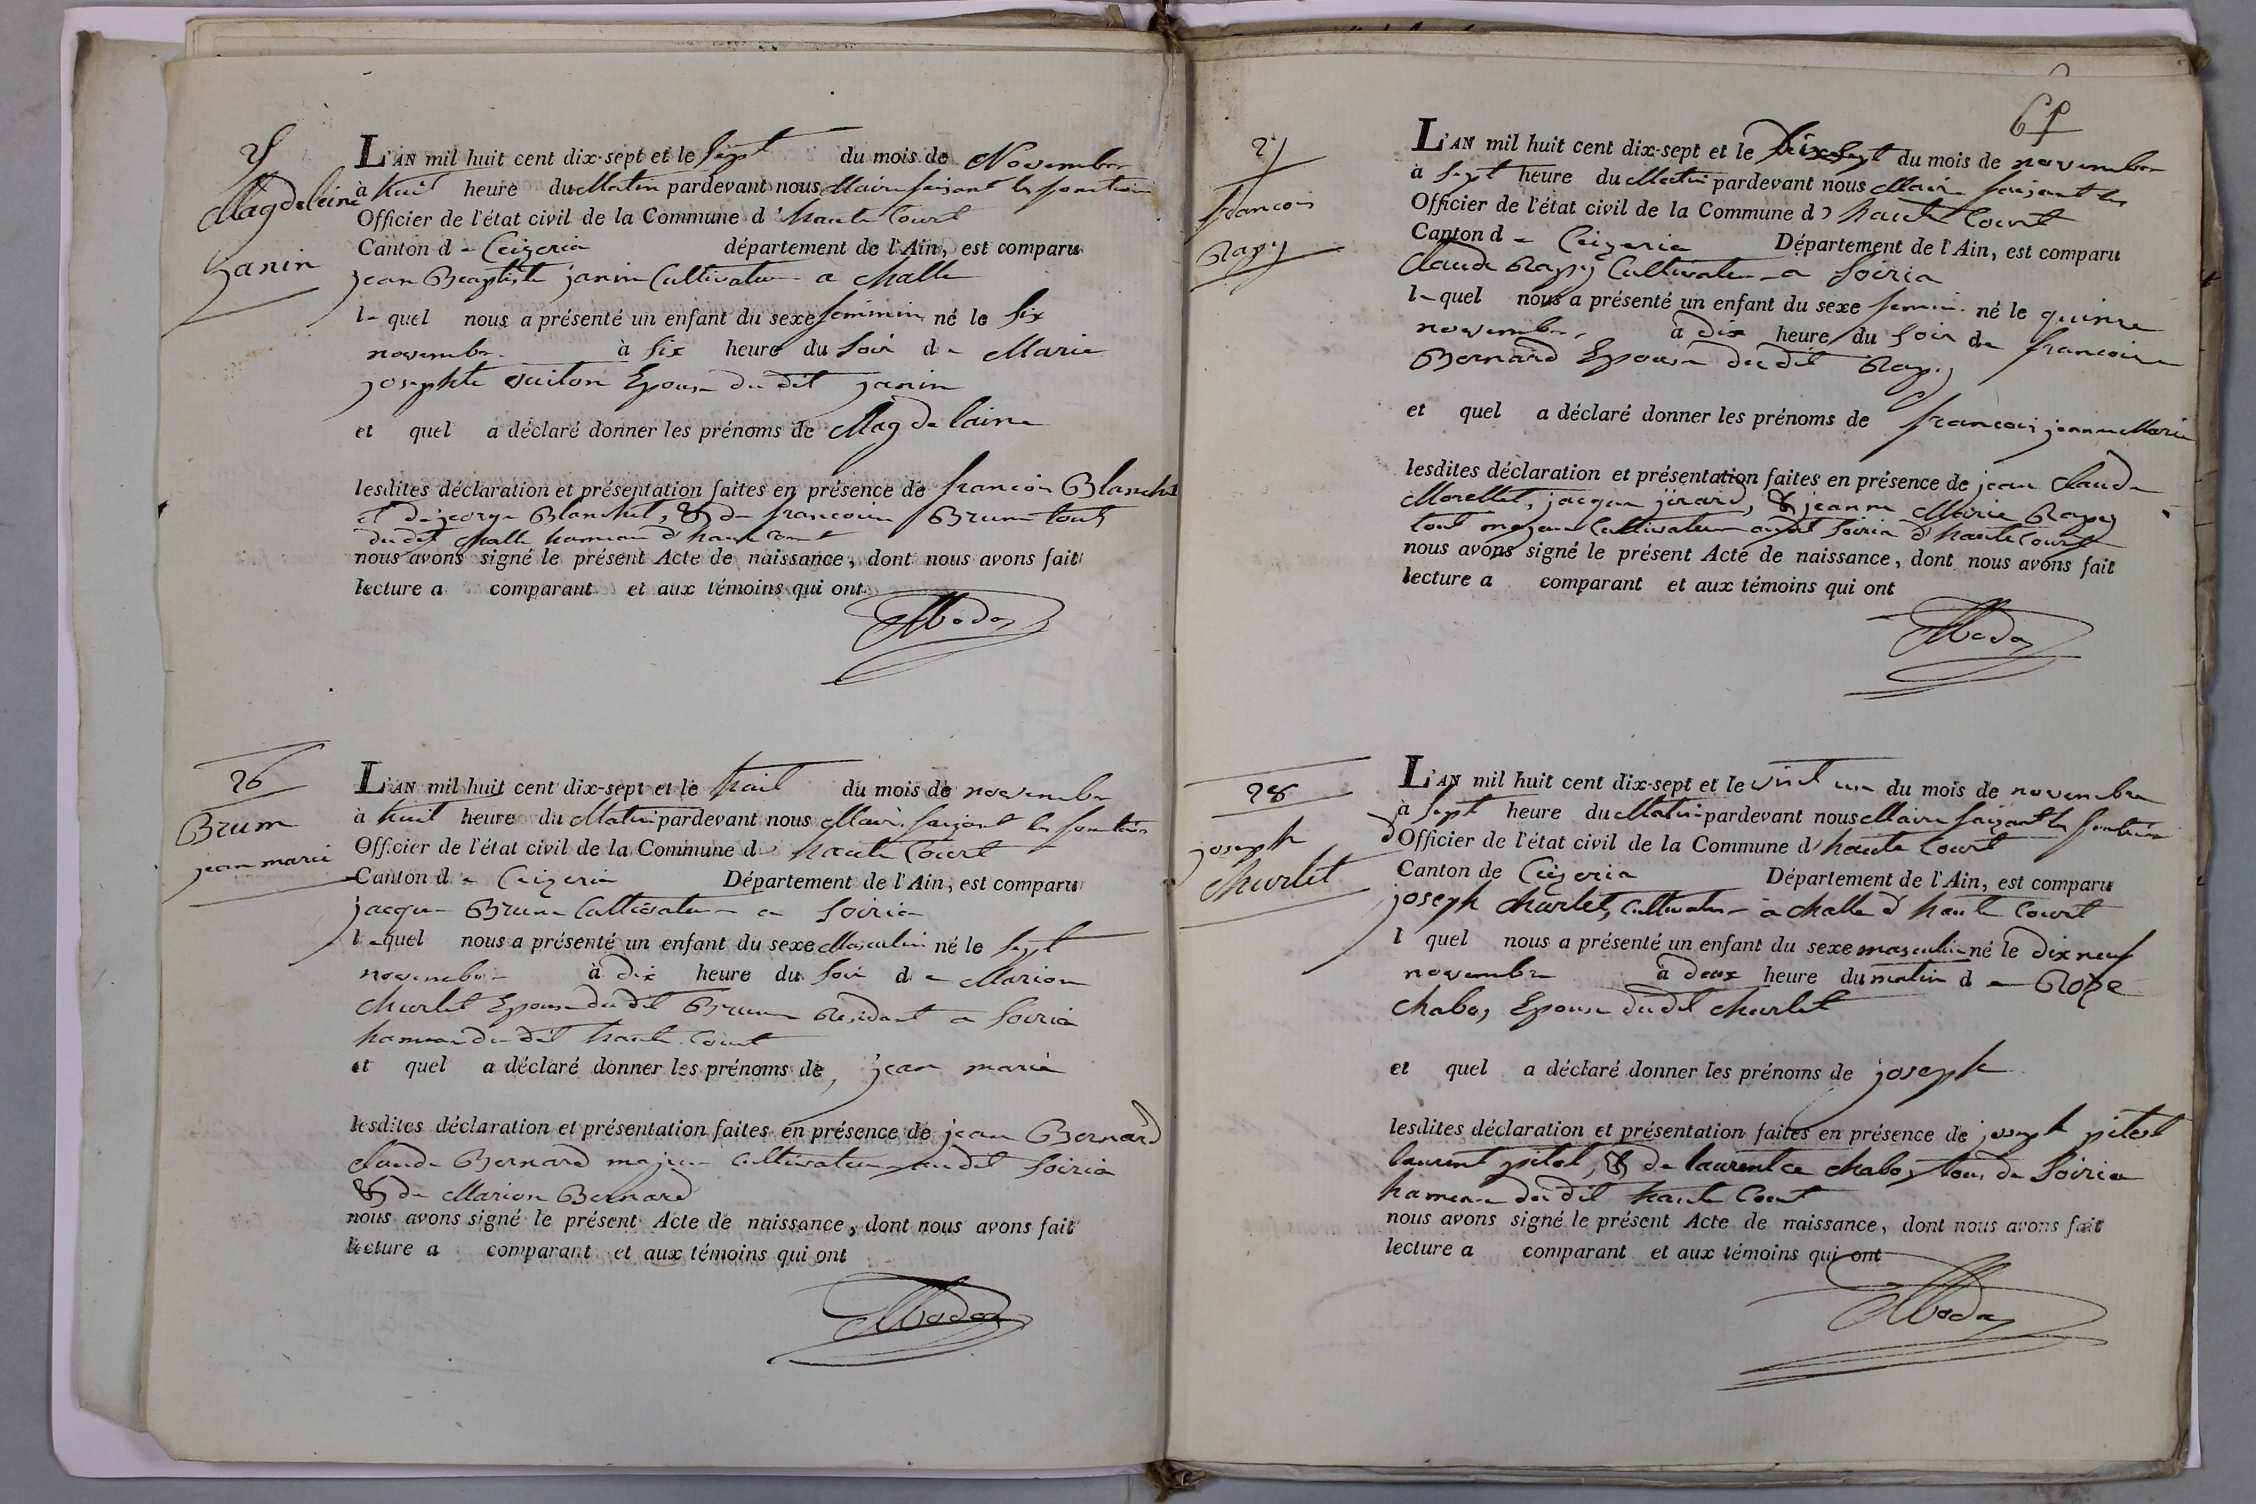 25
Magdeleine
Janin
L'AN mil huit cent dix-sept et le sept du mois de Novembre
à huit heure du Matin pardevant nous Maire faisant les fonctions
Officier de l'état civil de la Commune d' haute Court
Canton de Ceizeria département de l'Ain, est comparu
jean Baptiste janin Cultivateur a Challe
le quel nous a présenté un enfant du sexe feminin né le six
novembre à six heure du soir de Marie
josephte vuiton Epouse du dit janin
et quel a déclaré donner les prénoms de Magdelaine
lesdites déclaration et présentation faites en présence de francois Blanchet
et de george Blanchet, & de francoise Brun tous
du dit Challe hameau d'haute Court
nous avons signé le présent Acte de naissance, dont nous avons fait
lecture a comparant et aux témoins qui ont
26
Brum
jean marie
L'AN mil huit cent dix-sept et le huit du mois de novembre
à huit heure du Matin pardevant nous Maire faisant les fonctions
Officier de l'état civil de la Commune d' haute Court
Canton de Ceizeria Département de l'Ain, est comparu
jacque Brun Cultivateur a Soiria
le quel nous a présenté un enfant du sexe Masculin né le sept
novembre à dix heure du soir de Marion
Churlet Epouse du dit Brun Residant a Soiria
hameau du dit haute Court
et quel a déclaré donner les prénoms de jean marie
lesdites déclaration et présentation faites en présence de jean Bernard
claude Bernard majeur cultivateur au dit Soiria
& de Marion Bernard
nous avons signé le présent Acte de naissance, dont nous avons fait
lecture a comparant et aux témoins qui ont
27
francois
Rapy
L'AN mil huit cent dix-sept et le Dix Sept du mois de novembre
à sept heure du Matin pardevant nous Maire faisant les
Officier de l'état civil de la Commune d' haute Court
Canton de Ceizeria Département de l'Ain, est comparu
Claude Rapy Cultivateur a Soiria
le quel nous a présenté un enfant du sexe femini né le quinze
novembre à dix heure du soir de francoise
Bernard Epouse du dit Rapy
et quel a déclaré donner les prénoms de francois jeanne Marie
lesdites déclaration et présentation faites en présence de jean Claude
Morellet, jacque jirard, & jeanne Marie Rapy
tout majeur Cultivateur audit Soiria d'haute Court
nous avons signé le présent Acte de naissance, dont nous avons fait
lecture a comparant et aux témoins qui ont
28
joseph
Churlet
L'AN mil huit cent dix-sept et le vint un du mois de novembre
à sept heure du Matin pardevant nous Maire faisant les fonctions
d'Officier de l'état civil de la Commune d' haute Court
Canton de Ceizeria Département de l'Ain, est comparu
joseph Churlet, Cultivateur a Challe d'haute Court
l quel nous a présenté un enfant du sexe masculin né le dix neuf
novembre à deux heure du matin de Roze
Chaboz Epouse du dit Churlet
et quel a déclaré donner les prénoms de joseph
lesdites déclaration et présentation faites en présence de joseph pitol
laurent pitol, & de laurentce Chaboz tous de Soiria
hameau du dit haute Court
nous avons signé le présent Acte de naissance, dont nous avons fait
lecture a comparant et aux témoins qui ont